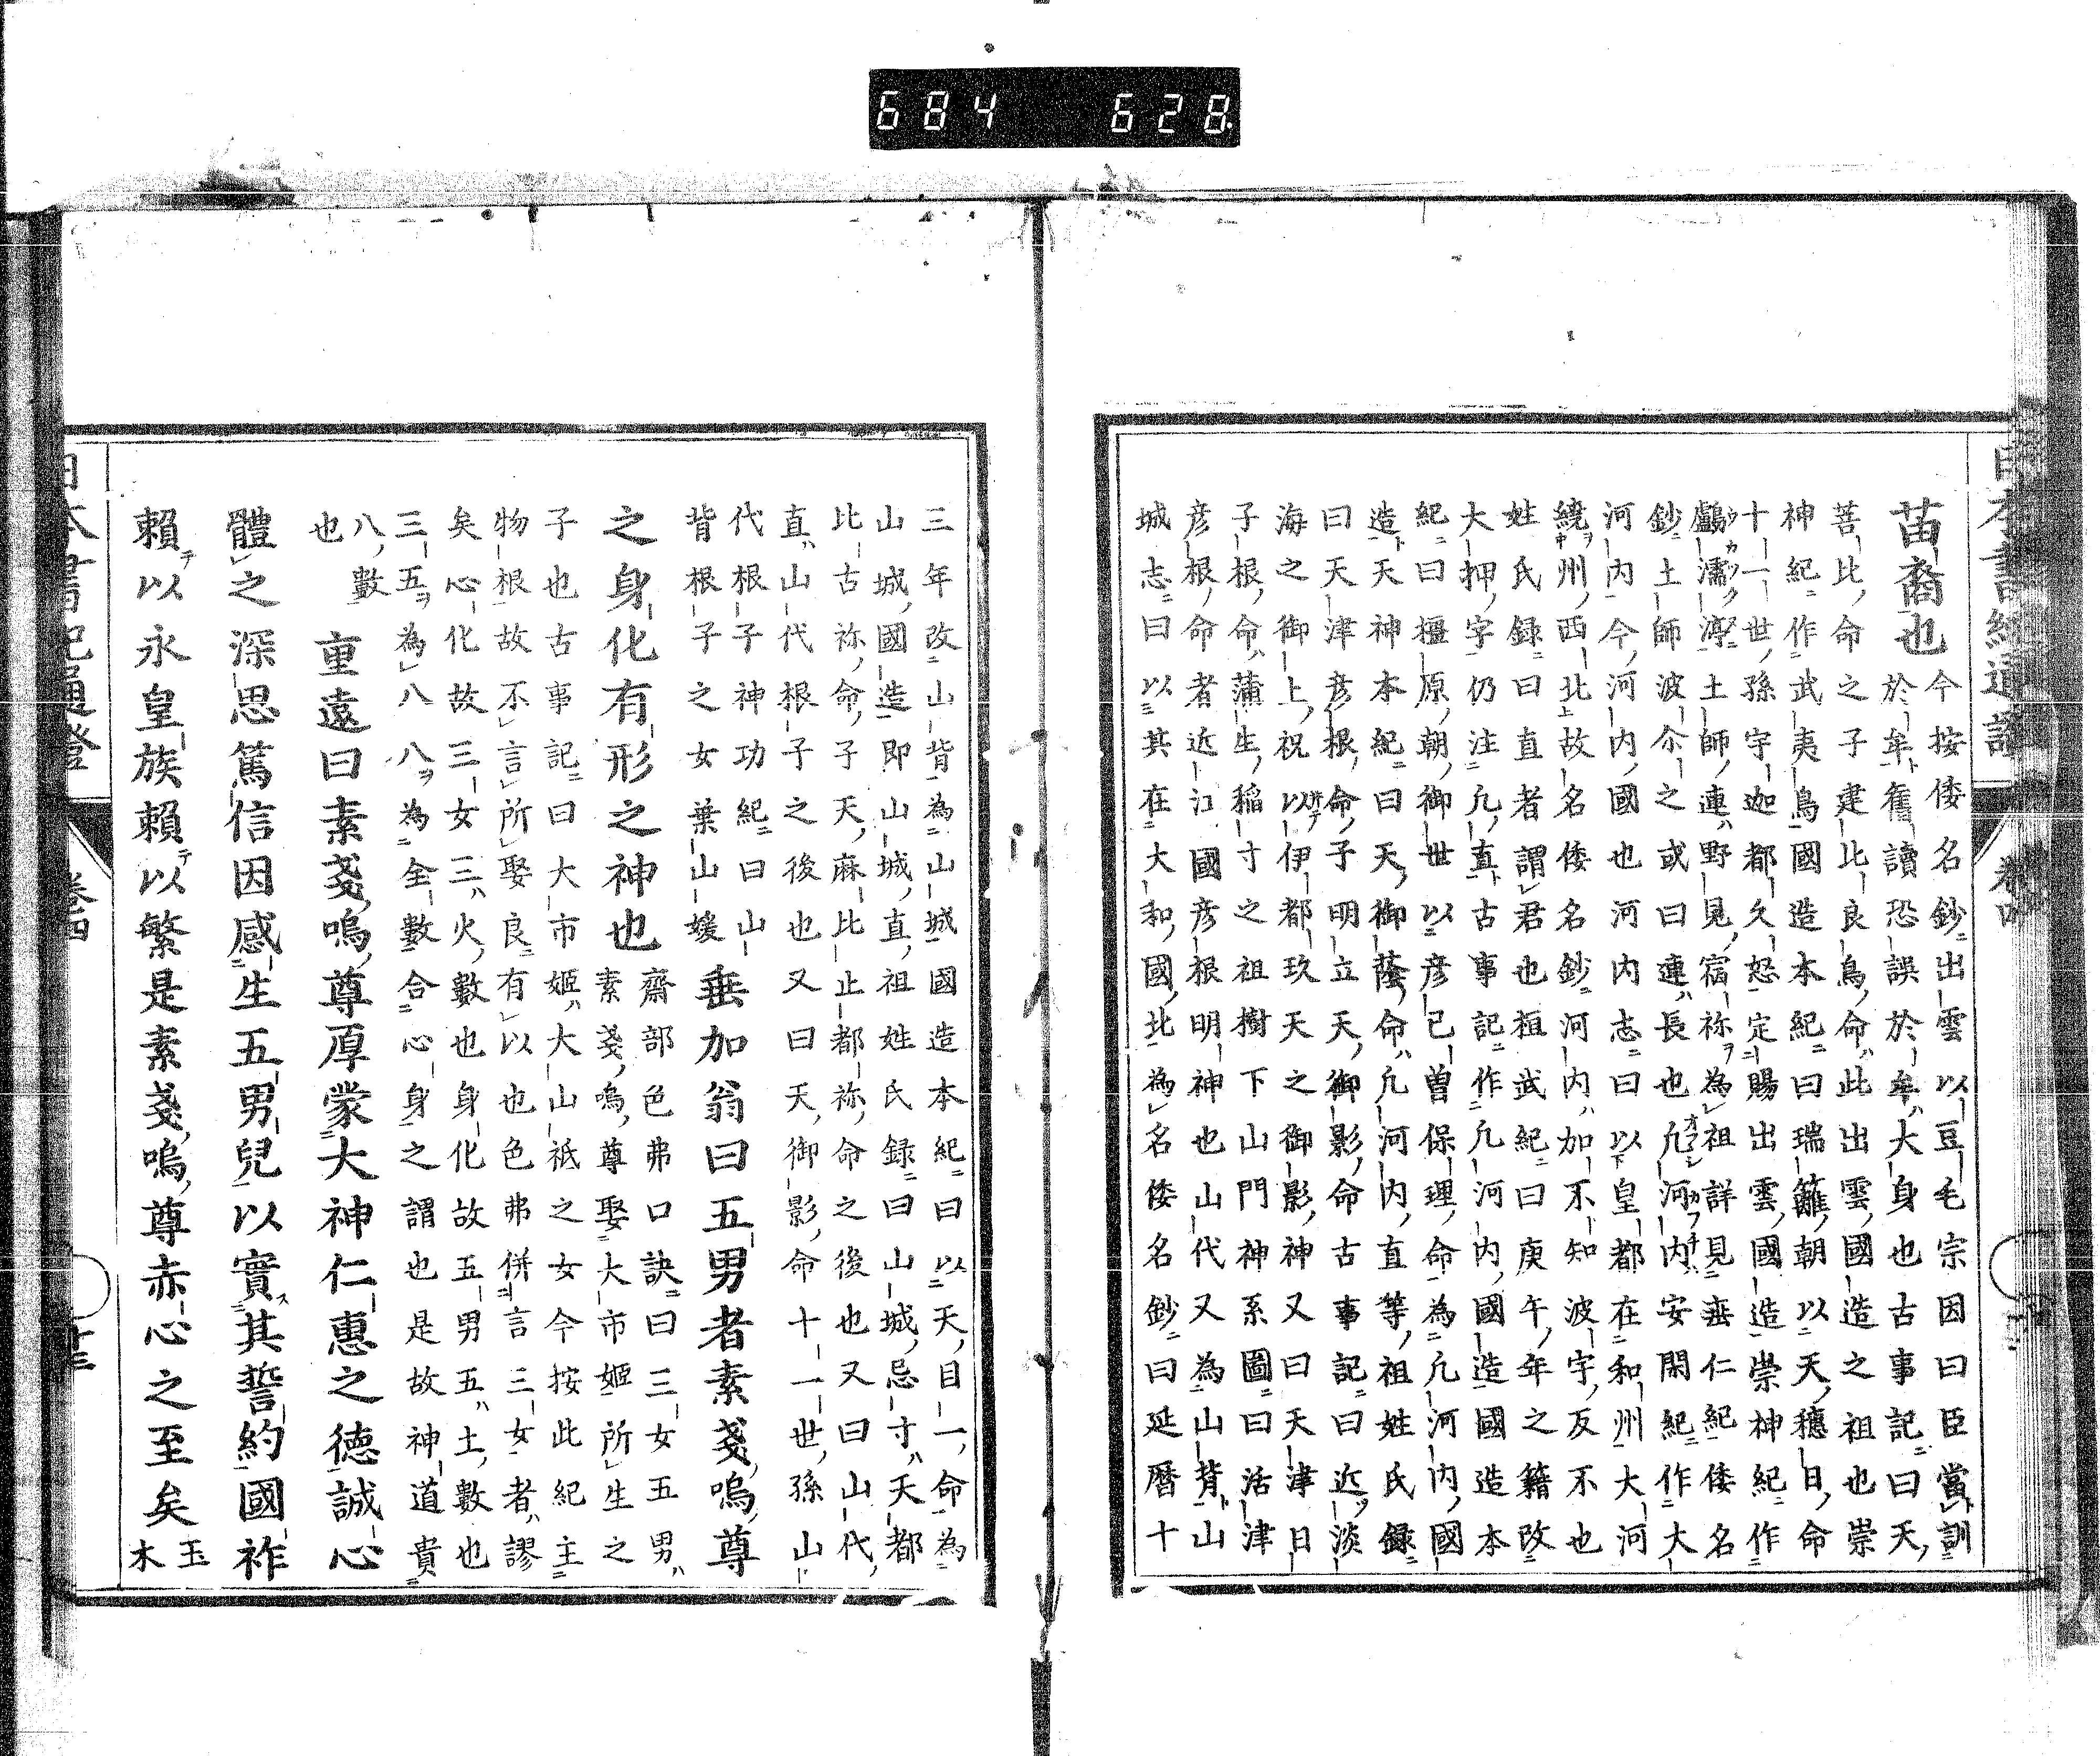 684 628
苗裔也 今按倭名鈔出雲以豆毛宗因曰臣當訓
於牟舊讀恐誤於牟大身也古事記曰天
菩比命之子建比良鳥命此出雲國造之祖也崇
神紀作武夷鳥國造本紀曰瑞籬朝以天穗日命
十一世孫宇迦都久怒定賜出雲國造崇神紀作
鸕濡渟土師連野見宿祢為祖詳見垂仁紀倭名
鈔土師波尓之或曰連長也凡河内安閑紀作大
河内今河内國也河内志曰以皇都在和州大河
繞州西北故名倭名鈔河内加不知波字反不也
姓氏録曰直者謂君也祖武紀曰庚午年之籍改
大押字仍注凡直古事記作凡河内國造國造本
紀曰橿原朝御世以彦己曽保理命為凡河内國
造天神本紀曰天御蔭命凡河内直等祖姓氏録
曰天津彦根命子明立天御影命古事記曰近淡
海之御上祝以伊都玖天之御影神又曰天津日
子根命蒲生稲寸之祖樹下山門神系圖曰活津
彦根命者近江國彦根明神也山代又為山背山
城志曰以其在大和國北為名倭名鈔曰延暦十
三年改山背為山城國造本紀曰以天目一命為
山城國造即山城直祖姓氏録曰山城忌寸天都
比古祢命子天麻比止都祢命之後也又曰山代
直山代根子之後也又曰天御影命十一世孫山
代根子神功紀曰山
背根子之女葉山媛 垂加翁曰五男者素戔嗚尊
之身化有形之神也 齋部色弗口訣曰三女五男
素戔嗚尊娶大市姫所生之
子也古事記曰大市姫大山祇之女今按此紀主
物根故不言所娶良有以也色弗併言三女者謬
矣心化故三女三火數也身化故五男五土數也
三五為八八為全數合心身之謂也是故神道貴
八數
也
重遠曰素戔嗚尊厚蒙大神仁惠之徳誠心
體之深思篤信因感生五男兒以實其誓約國祚
賴以永皇族賴以繁是素戔嗚尊赤心之至矣 玉
木